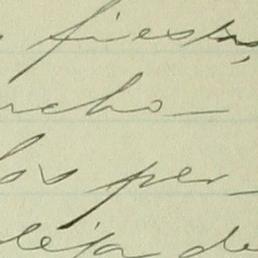 fiestas,
ucho-
los per-
leja de